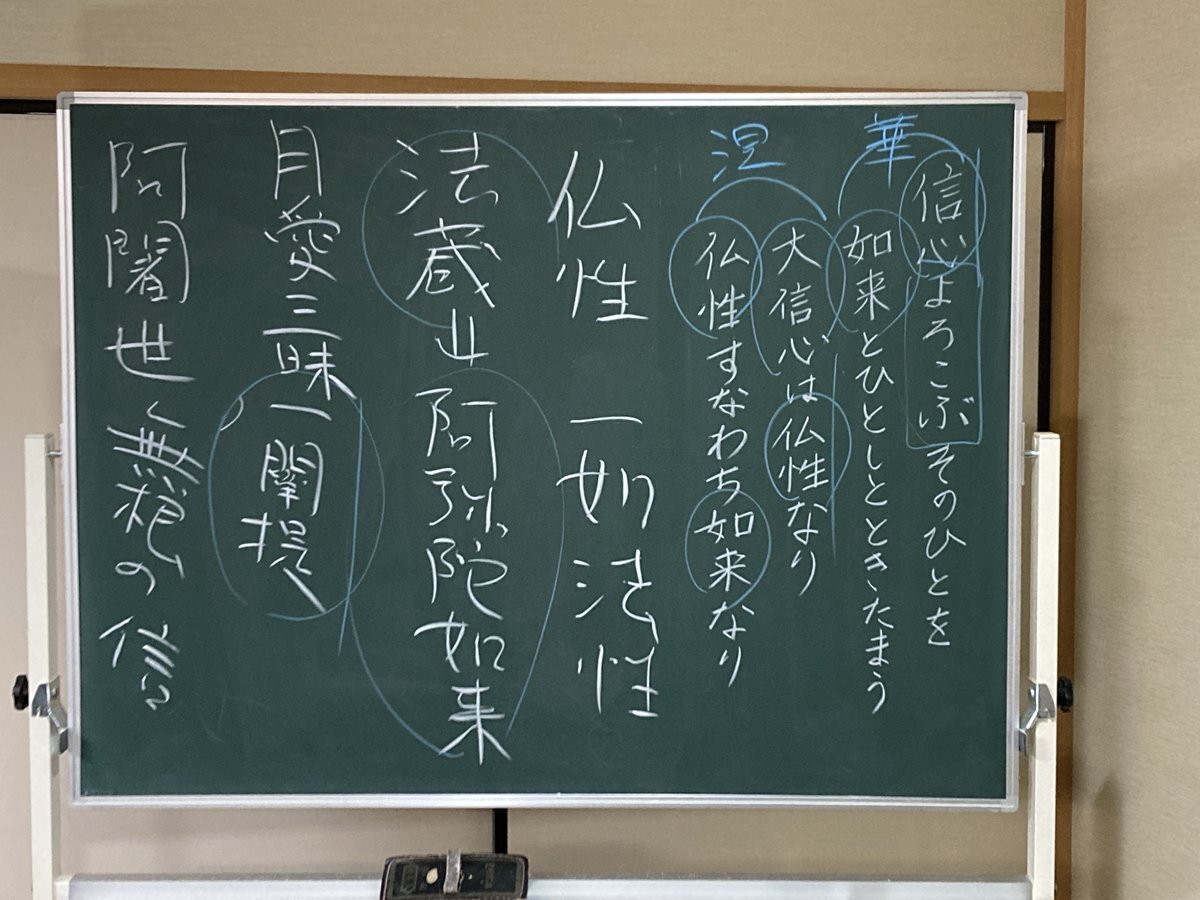 華
信心よろこぶそのひとを
如来とひとしとときたまう
涅
大信心は仏性なり
仏性すなわち如来なり
仏性 一如 法性
法蔵 阿弥陀如来
月愛三昧 一闡提
阿闍世 無根の信